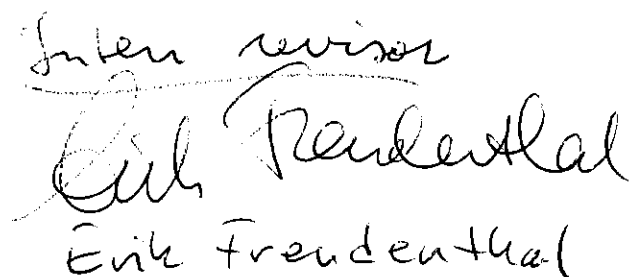 Intern revisor
Erik Freudenthal
Erik Freudenthal